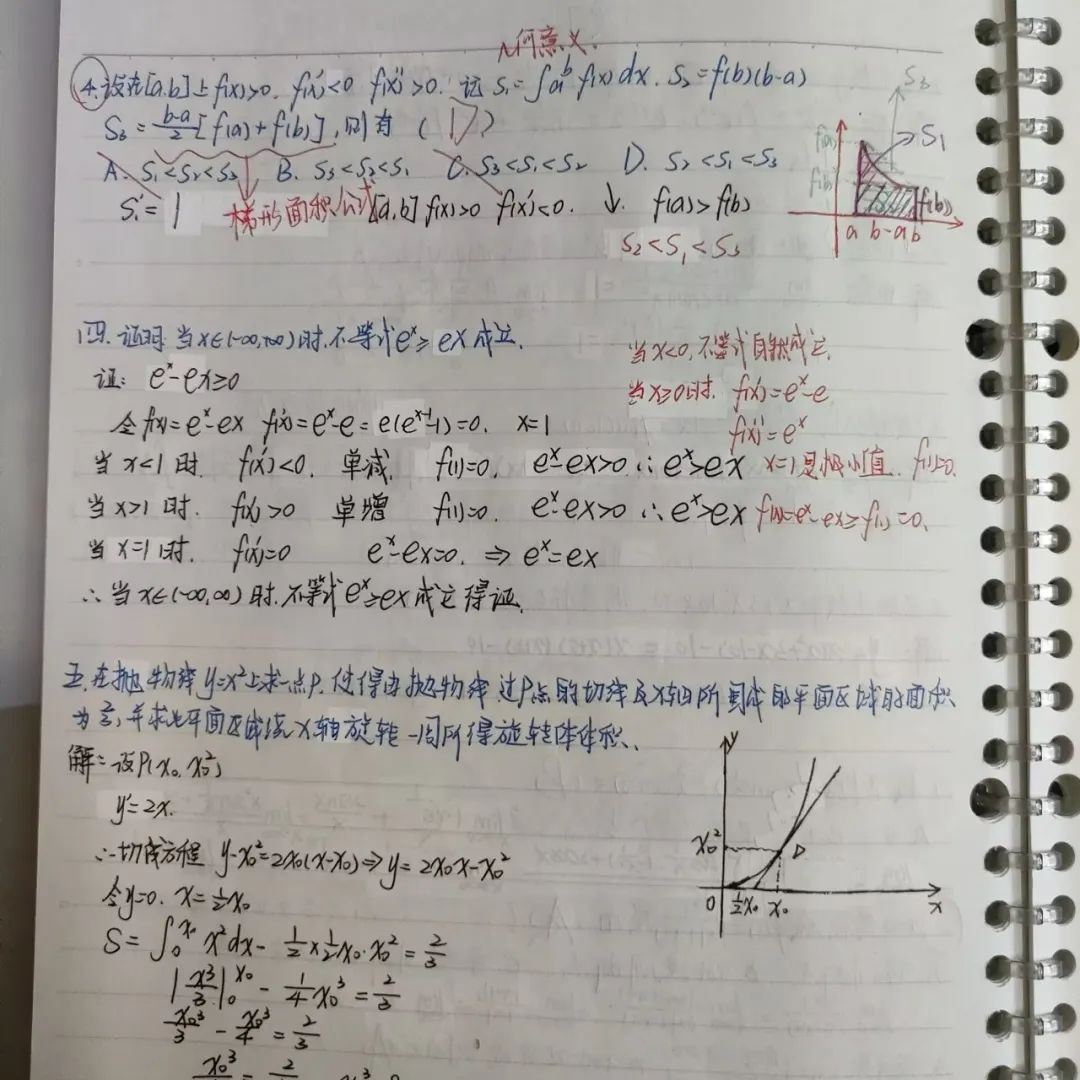 几何意义.
4.设在[a,b]上f(x)>0. f'(x)<0 f''(x)>0. 记 S₁=∫ₐᵇf(x)dx. S₂=f(b)(b-a)
S₃=(b-a)/2[f(a)+f(b)],则有 ( D )
A. S₁<S₂<S₃ B. S₃<S₂<S₁ C. S₃<S₁<S₂ D. S₂<S₁<S₃
梯形面积公式 [a,b] f(x)>0 f'(x)<0. ↓. f(a)>f(b)
S₂<S₁<S₃
S₃
S₁
f(a)
f(b)
f(b)
a b-a b
四.证明:当x∈(-∞,+∞)时,不等式eˣ≥ex成立.
证: eˣ-ex≥0
令f(x)=eˣ-ex f'(x)=eˣ-e=e(eˣ⁻¹-1)=0. x=1
当x<1时. f'(x)<0. 单减. f(1)=0. eˣ-ex>0 ∴eˣ>ex
当x>1时. f'(x)>0 单增 f(1)=0. eˣ-ex>0 ∴eˣ>ex
当x=1时. f'(x)=0 eˣ-ex=0. ⇒ eˣ=ex
∴当x∈(-∞,∞)时,不等式eˣ≥ex成立得证.
当x<0,不等式自然成立.
当x≥0时. f'(x)=eˣ-e
f''(x)=eˣ
x=1是极小值. f(1)=0.
f(x)=eˣ-ex≥f(1)=0.
五.在抛物线y=x²上求一点P.使得由抛物线.过P点的切线及x轴所围成的平面区域的面积
为2/3,并求此平面区域绕x轴旋转一周所得旋转体体积.
解:设P(x₀,x₀²)
y'=2x.
∴切线方程 y-x₀²=2x₀(x-x₀)⇒y=2x₀x-x₀²
令y=0. x=½x₀
S=∫₀^x₀ x²dx-½×½x₀·x₀²=2/3
|x³/3|₀^x₀ - 1/4x₀³=2/3
x₀³/3-x₀³/4=2/3
y
x₀²
P
O ½x₀ x₀ x